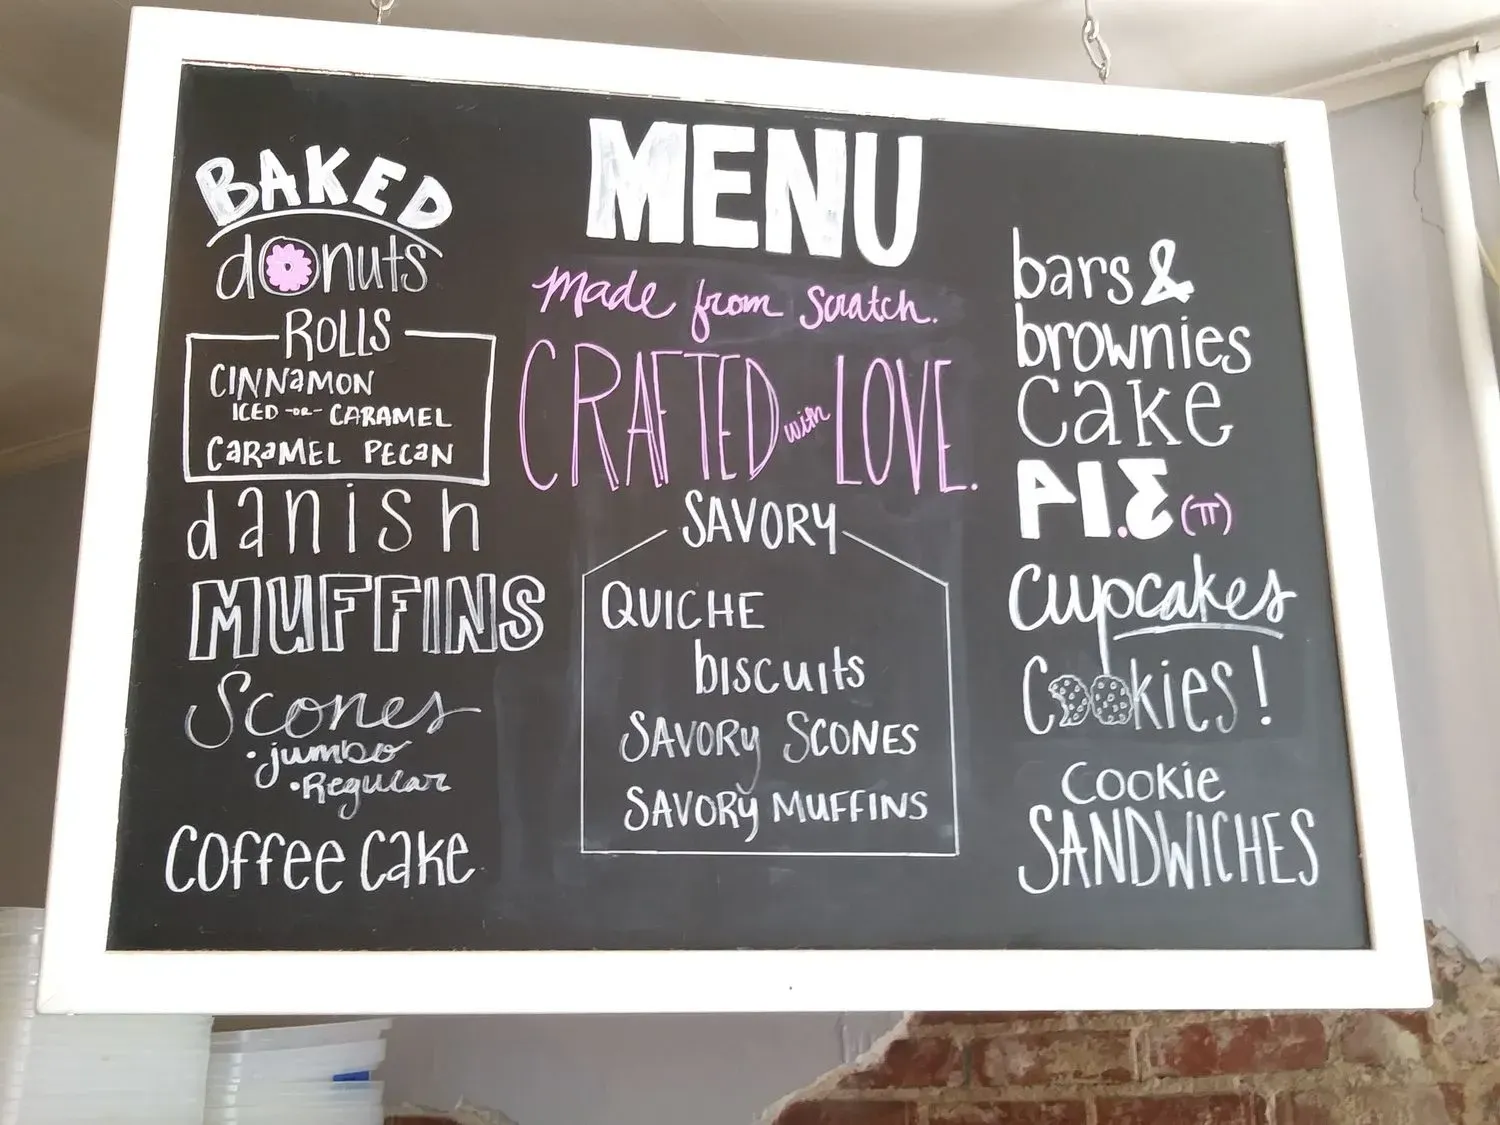 MENU
made from scratch.
CRAFTED with LOVE.
BAKED
donuts
ROLLS
CINNAMON
ICED -OR- CARAMEL
CARAMEL PECAN
danish
MUFFINS
Scones
• jumbo
• Regular
coffee cake
SAVORY
QUICHE
biscuits
SAVORY SCONES
SAVORY MUFFINS
bars &
brownies
cake
PI.E (π)
cupcakes
Cookies!
COOKIE
SANDWICHES